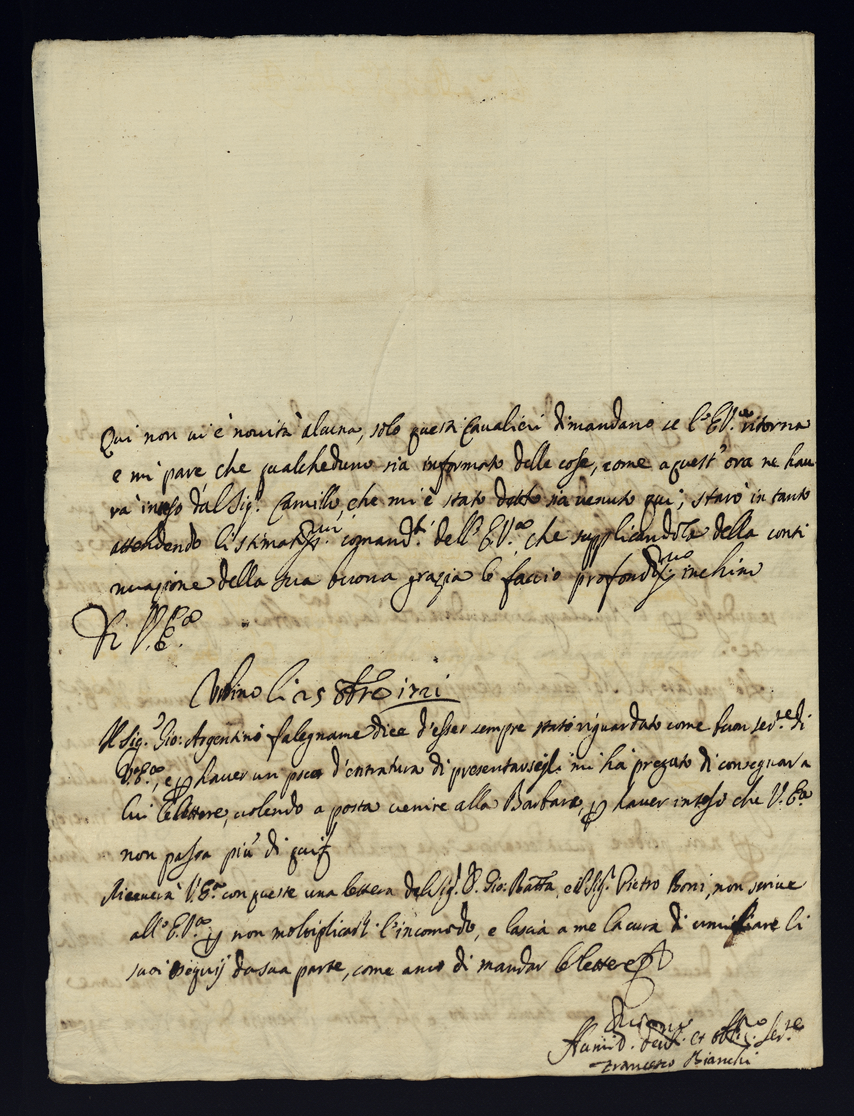 Qui non ui è nouità alcuna, solo questi Caualieri dimandano se l'E.V. ritorna
e mi pare che qualcheduno sia informato delle cose, come a quest'ora ne hau
rà inteso dal Sig.r Camillo, che mi è stato detto sia uenuto qui; starò in tanto
attendendo li stimatiss.mi comand.ti dell'E.V.a, che supplicandola della conti
nuazione della sua buona grazia le faccio profondiss.mo inchino
Di V.E.a
Urbino li 25 8bre 1721
Il Sig.r Gio: Argentino falegname dice d'esser sempre stato riguardato come buon ser.re di
V.E.a, e p hauer un poco d'entratura di presentarsegli mi ha pregato di consegnar a
lui le lettere, uolendo a posta uenire alla Barbara, p hauer inteso che V.E.a
non passa più di qui
Riceuerà V.E.a con queste una lettera del Sig.r D. Gio: Batta, e il Sig.r Pietro Boni, non scriue
all'E.V.a p non moltiplicarli l'incomodo, e lascia a me la cura di umiliare li
suoi ossequij da sua parte, come anco di mandar le lettere
Humil. deuot. et obl.mo Ser.re
Francesco Bianchi